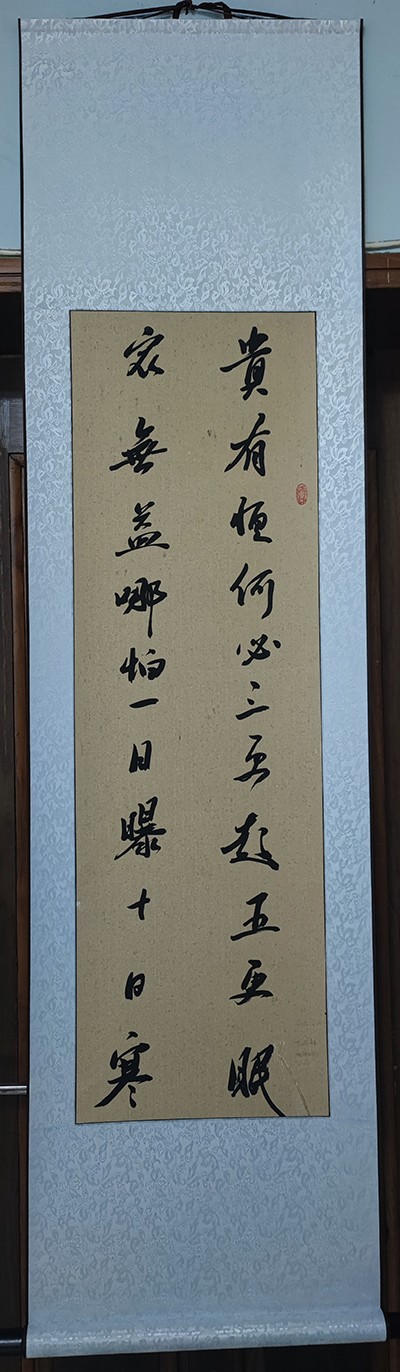 貴有恒何必三更起五更眠
最無益哪怕一日曝十日寒